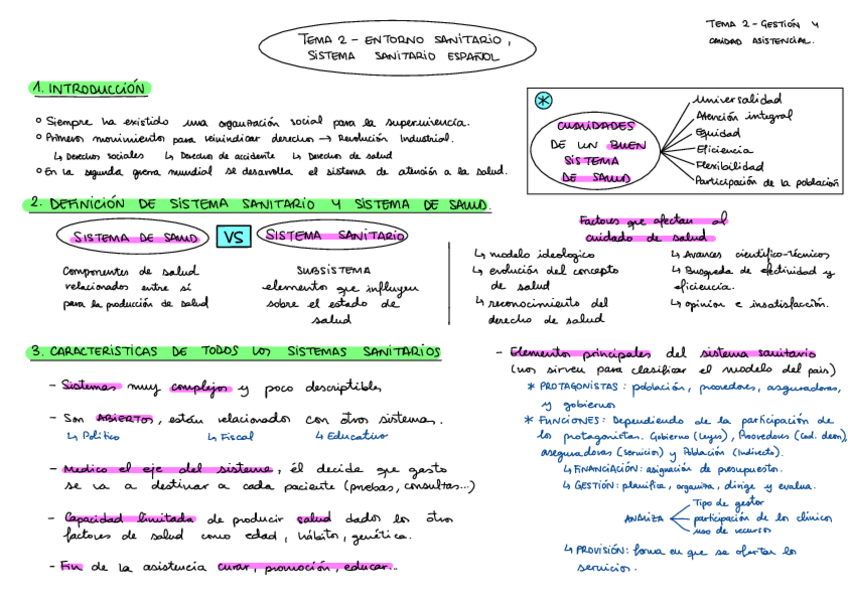 TEMA 2 - GESTIÓN Y
CALIDAD ASISTENCIAL.
TEMA 2 - ENTORNO SANITARIO,
SISTEMA SANITARIO ESPAÑOL
1. INTRODUCCIÓN
° Siempre ha existido una organización social para la supervivencia.
° Primeros movimientos para reivindicar derechos → Revolución Industrial.
↳ Derechos sociales ↳ Derechos de accidente ↳ Derechos de salud
° En la segunda guerra mundial se desarrolla el sistema de atención a la salud.
*
CUALIDADES
DE UN BUEN
SISTEMA
DE SALUD
Universalidad
Atención integral
Equidad
Eficiencia
Flexibilidad
Participación de la población
2. DEFINICIÓN DE SISTEMA SANITARIO Y SISTEMA DE SALUD.
SISTEMA DE SALUD VS SISTEMA SANITARIO
Componentes de salud
relacionados entre sí
para la producción de salud
SUBSISTEMA
elementos que influyen
sobre el estado de
salud
Factores que afectan al
cuidado de salud
↳ modelo ideologico
↳ evolución del concepto
de salud
↳ reconocimiento del
derecho de salud
↳ Avances científico-técnicos
↳ Busqueda de efectividad y
eficiencia.
↳ opinion e insatisfacción.
3. CARACTERISTICAS DE TODOS LOS SISTEMAS SANITARIOS
- Sistemas muy complejos y poco descriptibles
- Son ABIERTOS, están relacionados con otros sistemas.
↳ Político ↳ Fiscal ↳ Educativo
- Medico el eje del sistema, él decide que gasto
se va a destinar a cada paciente (pruebas, consultas...)
- Capacidad limitada de producir salud dados los otros
factores de salud como edad, hábitos, genética.
- Fin de la asistencia curar, promoción, educar...
- Elementos principales del sistema sanitario
(nos sirven para clasificar el modelo del pais)
* PROTAGONISTAS: población, proveedores, aseguradoras,
y gobiernos
* FUNCIONES: Dependiendo de la participación de
los protagonistas. Gobierno (leyes), Proveedores
aseguradoras (servicios) y Población (indirecto).
↳ FINANCIACIÓN: asignación de presupuesto.
↳ GESTIÓN: planifica, organiza, dirige y evalua.
ANALIZA
Tipo de gestor
participación de los clínicos
uso de recursos
↳ PROVISIÓN: forma en que se ofertan los
servicios.